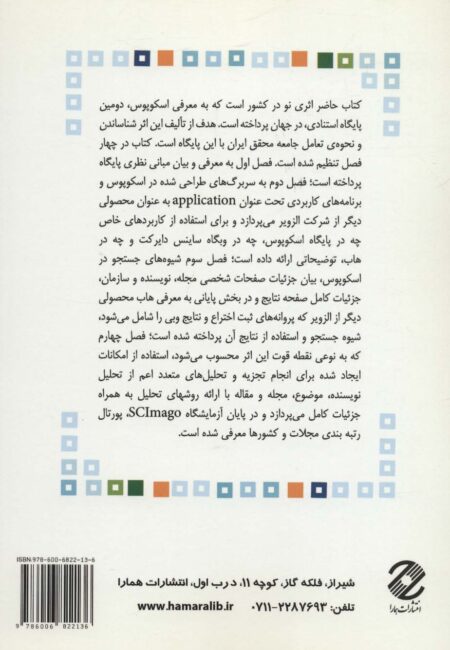 کتاب حاضر اثری نو در کشور است که به معرفی اسکوپوس، دومین
پایگاه استنادی، در جهان پرداخته است. هدف از تألیف این اثر شناساندن
و نحوه‌ی تعامل جامعه محقق ایران با این پایگاه است. کتاب در چهار
فصل تنظیم شده است. فصل اول به معرفی و بیان مبانی نظری پایگاه
پرداخته است؛ فصل دوم به سربرگ‌های طراحی شده در اسکوپوس و
برنامه‌های کاربردی تحت عنوان application به عنوان محصولی
دیگر از شرکت الزویر می‌پردازد و برای استفاده از کاربردهای خاص
چه در پایگاه اسکوپوس، چه در وبگاه ساینس دایرکت و چه در
هاب، توضیحاتی ارائه داده است؛ فصل سوم شیوه‌های جستجو در
اسکوپوس، بیان جزئیات صفحات شخصی مجله، نویسنده و سازمان،
جزئیات کامل صفحه نتایج و در بخش پایانی به معرفی هاب محصولی
دیگر از الزویر که پروانه‌های ثبت اختراع و نتایج وبی را شامل می‌شود،
شیوه جستجو و استفاده از نتایج آن پرداخته شده است؛ فصل چهارم
که به نوعی نقطه قوت این اثر محسوب می‌شود، استفاده از امکانات
ایجاد شده برای انجام تجزیه و تحلیل‌های متعدد اعم از تحلیل
نویسنده، موضوع، مجله و مقاله با ارائه روشهای تحلیل به همراه
جزئیات کامل می‌پردازد و در پایان آزمایشگاه SCImago، پورتال
رتبه بندی مجلات و کشورها معرفی شده است.
ISBN:978-600-6822-13-6
9786006822136
شیراز، فلکه گاز، کوچه ۱۱، درب اول، انتشارات همارا
تلفن: ۲۲۸۷۶۹۳-۰۷۱۱ www.hamaralib.ir
انتشارات همارا